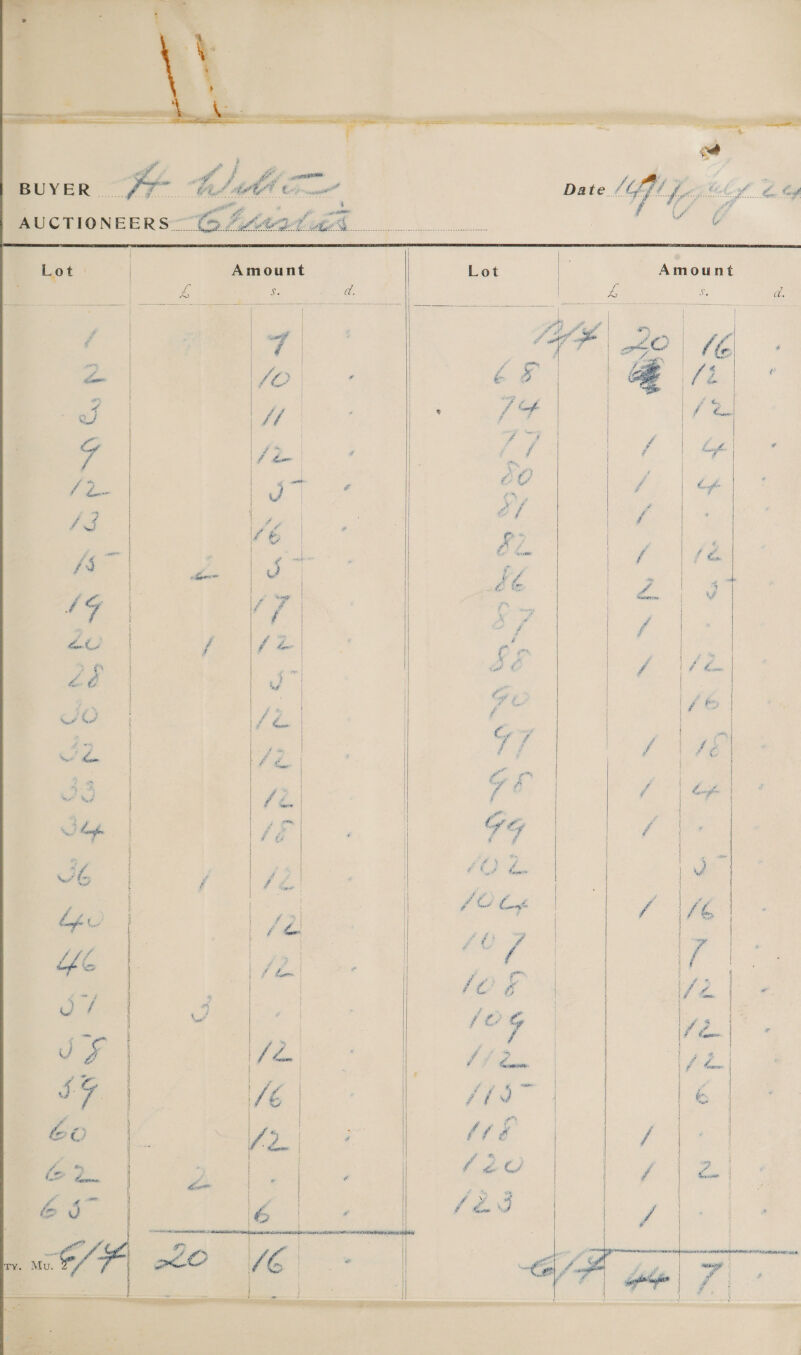 BUYER H
Date 1917 July 24
AUCTIONEERS Christies
Lot Amount
£ s. d.
1 7 .
2 10 .
3 11 .
9 12 .
12 5 .
13 16 .
15 2 5 .
19 17 .
20 1 12 .
28 5
30 12
32 12
33 12
34 18 .
36 1 12
40 12
46 12 .
57 3 . .
58 12 .
59 16 .
60 12 .
62 2 . .
65 6 .
TY. MU. C/F 20 16 .
Lot Amount
£ s. d.
B/F 20 16 .
68 12 .
74 12
77 1 4 .
80 1 4 .
81 1 .
82 1 12
86 2 5
87 1 .
88 1 12
90 16
97 1 18 .
98 1 4 .
99 1 .
102 5
104 1 16
107 7 .
108 12 .
109 12 .
112 12
115 6
118 1 .
120 1 2 .
123 1 . .
C/F 44 7 .